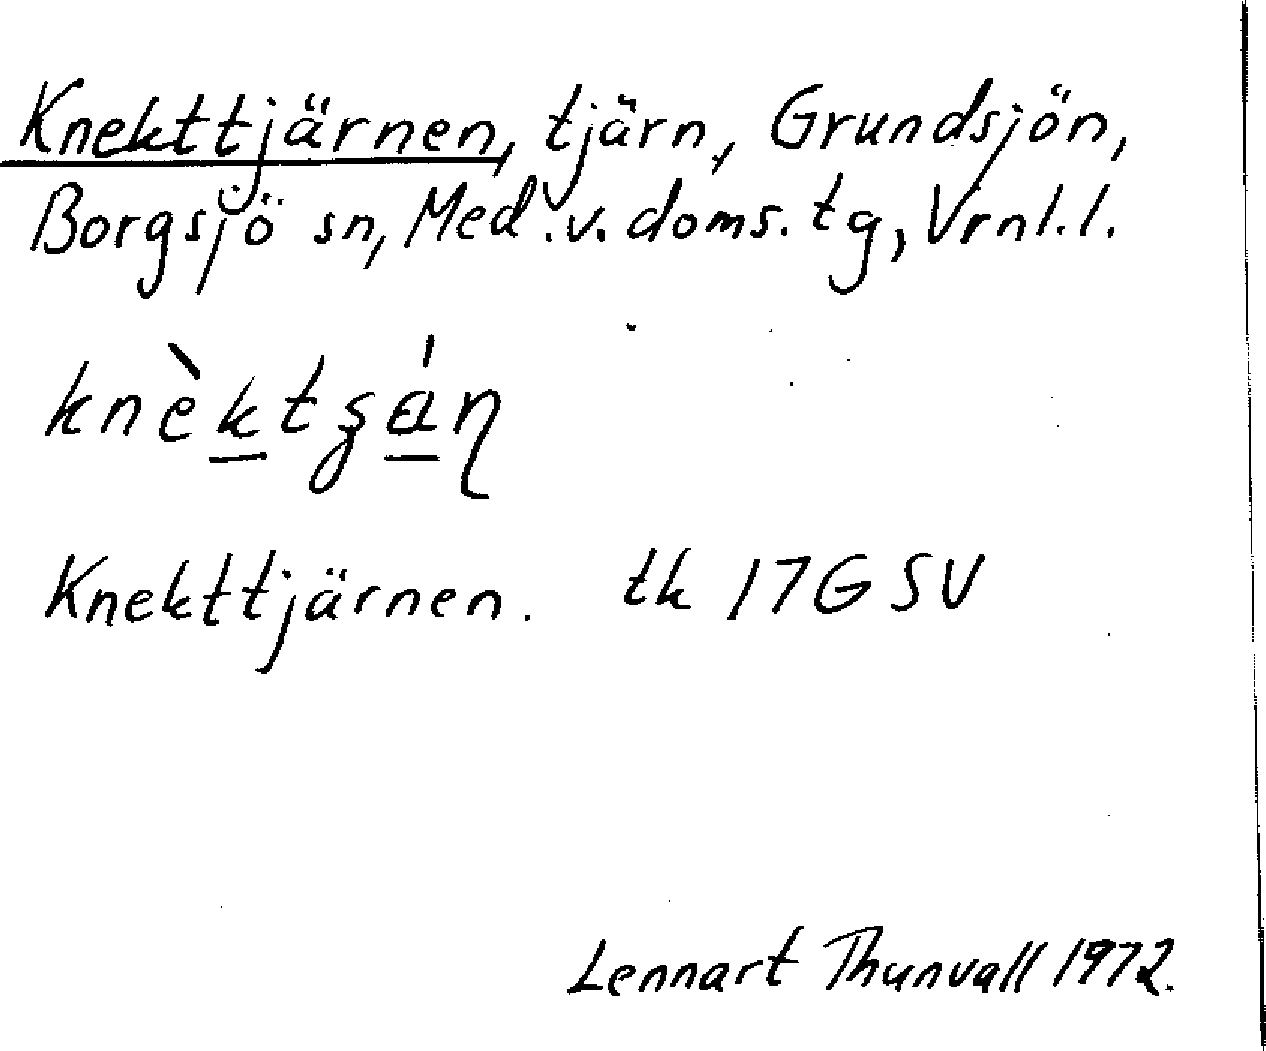 Knekttjärnen, tjärn, Grundsjön,
Borgsjö sn, Med.v.doms.tg, Vrnl.l.
knèktʂán
Knekttjärnen. tk 17G SV
Lennart Thunvall 1972.